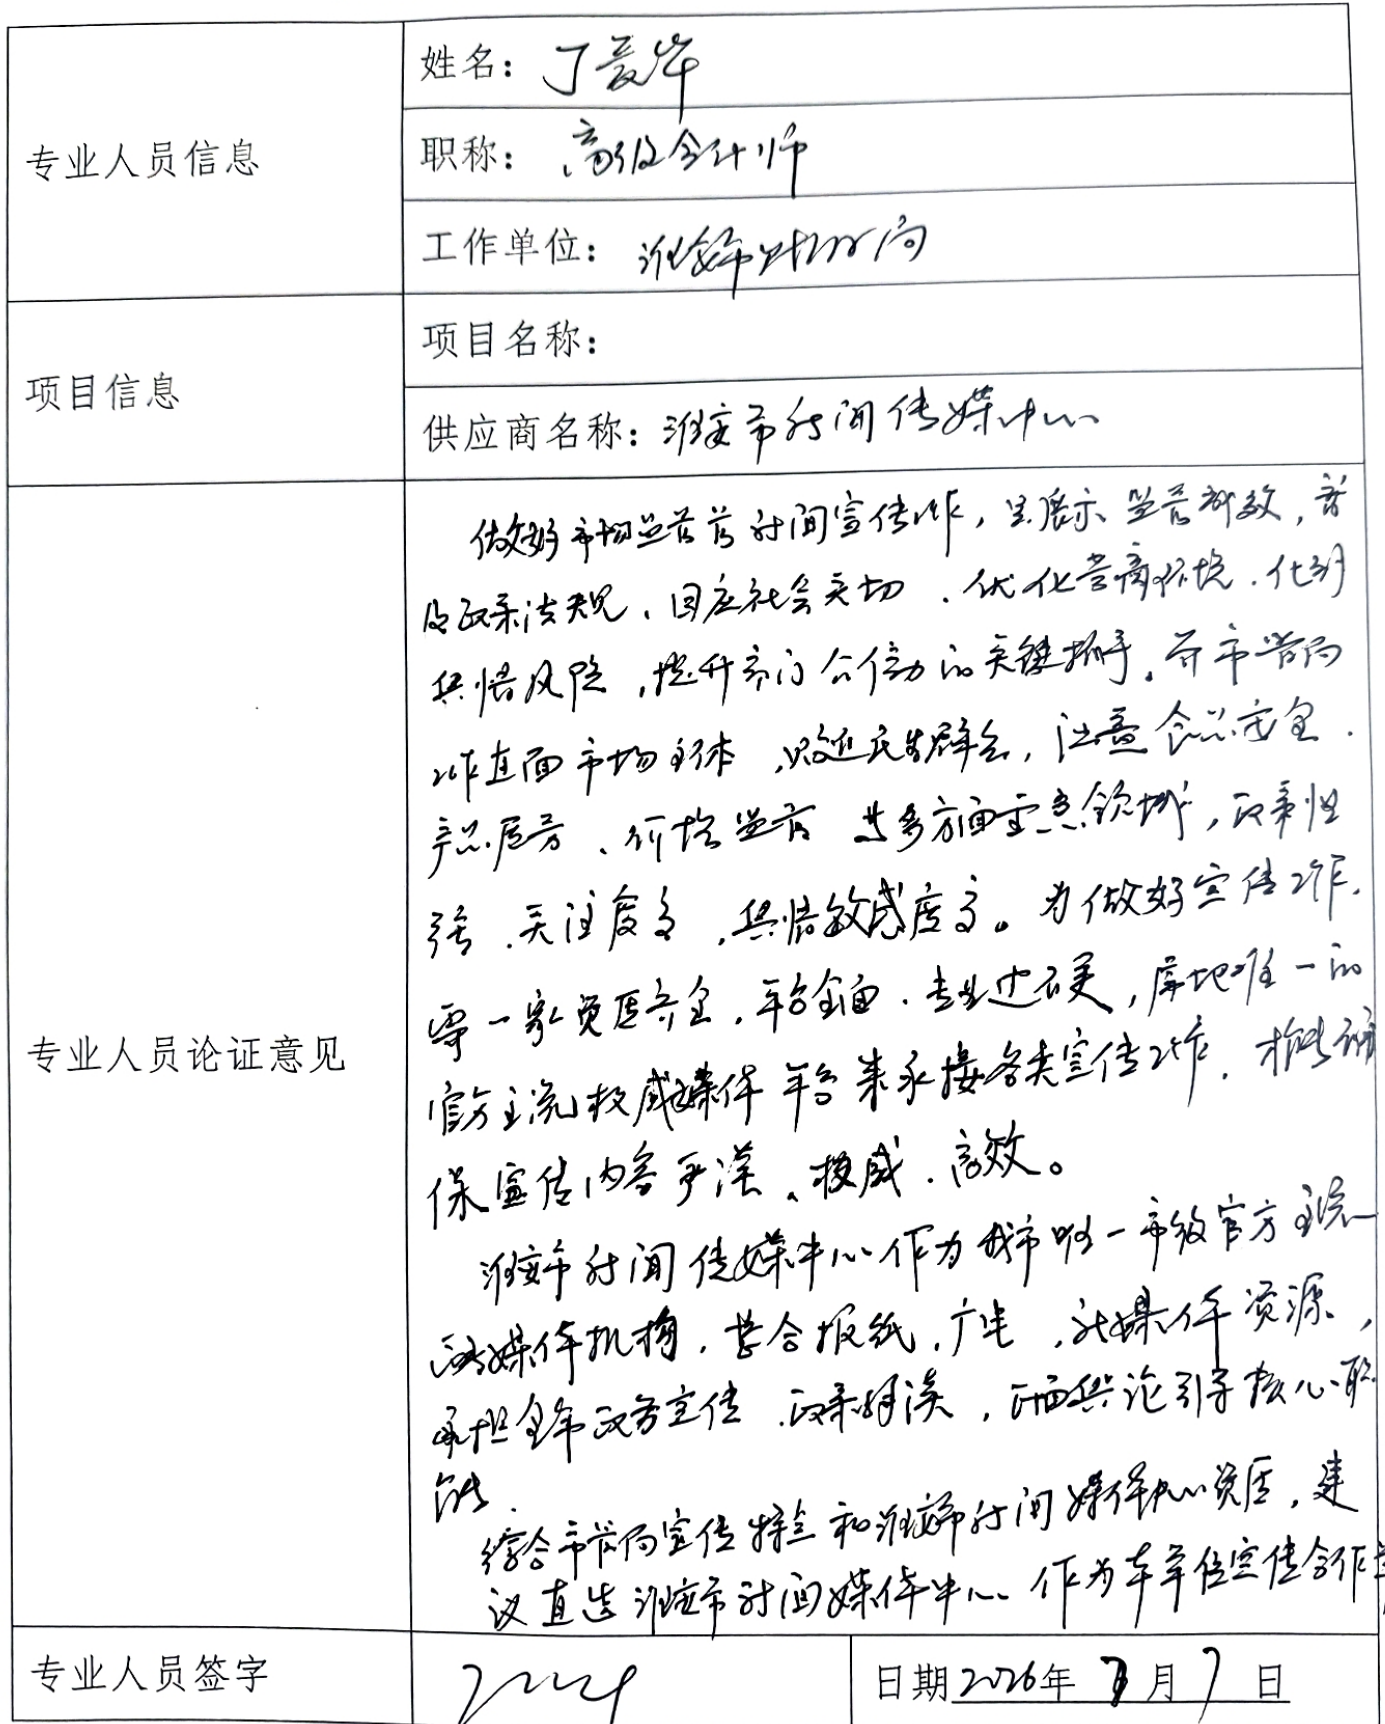 专业人员信息
姓名：丁爱华
职称：高级会计师
工作单位：淮安市财政局
项目信息
项目名称：
供应商名称：淮安市新闻传媒中心
专业人员论证意见
做好市场监管局新闻宣传工作，是展示监管成效，普
及政策法规、回应社会关切、优化营商环境、化解
舆情风险，提升部门公信力的关键抓手。市监管局
工作直面市场主体，贴近民生群众，涵盖食品安全、
产品质量、价格监管等多方面重点领域，政策性
强、关注度高，舆情敏感度高。为做好宣传工作，
需一家资质齐全、平台全面、专业过硬，属地唯一的
官方主流权威媒体平台来承接各类宣传工作，才能确
保宣传内容严谨、权威、高效。
淮安市新闻传媒中心作为我市唯一市级官方主流
融媒体机构，整合报纸，广电，新媒体资源，
承担全市政务宣传、政策解读，正面舆论引导核心职
能。
综合市监局宣传特点和淮安市新闻媒体中心资质，建
议直选淮安市新闻媒体中心作为本单位宣传合作
专业人员签字
日期2026年 月7日